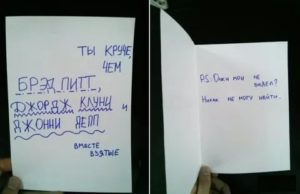 ТЫ КРУЧЕ,
ЧЕМ
БРЭД ПИТТ,
ДЖОРДЖ КЛУНИ и
ДЖОННИ ДЕПП
ВМЕСТЕ
ВЗЯТЫЕ
P.S: Джи мои не
видел?
Никак не могу найти.